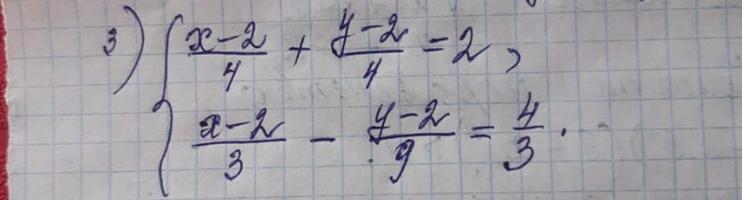 3) { (x-2)/4 + (y-2)/4 = 2,
(x-2)/3 - (y-2)/9 = 4/3.